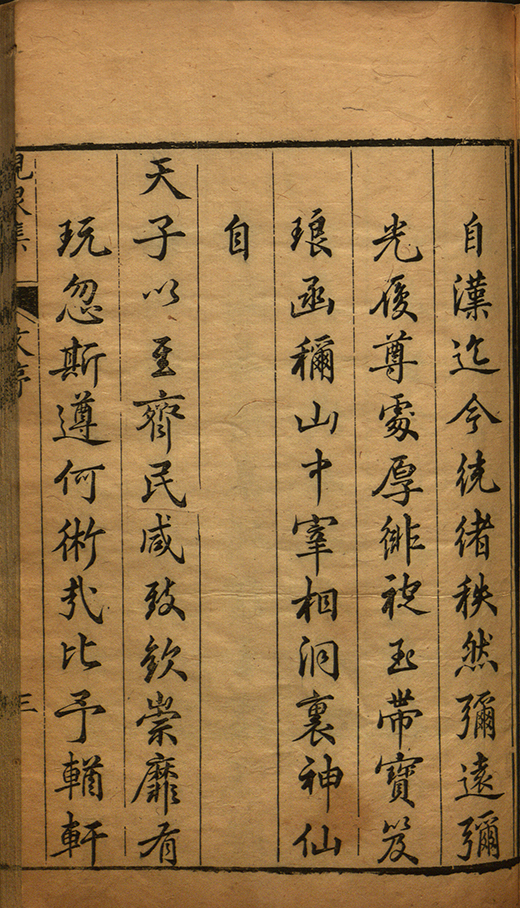 自漢迄今統緒秩然彌遠彌
光優尊處厚緋袍玉帶寶笈
琅函稱山中宰相洞裏神仙
自
天子以至齊民咸致欽崇靡有
玩忽斯遵何術哉比予輶軒
三